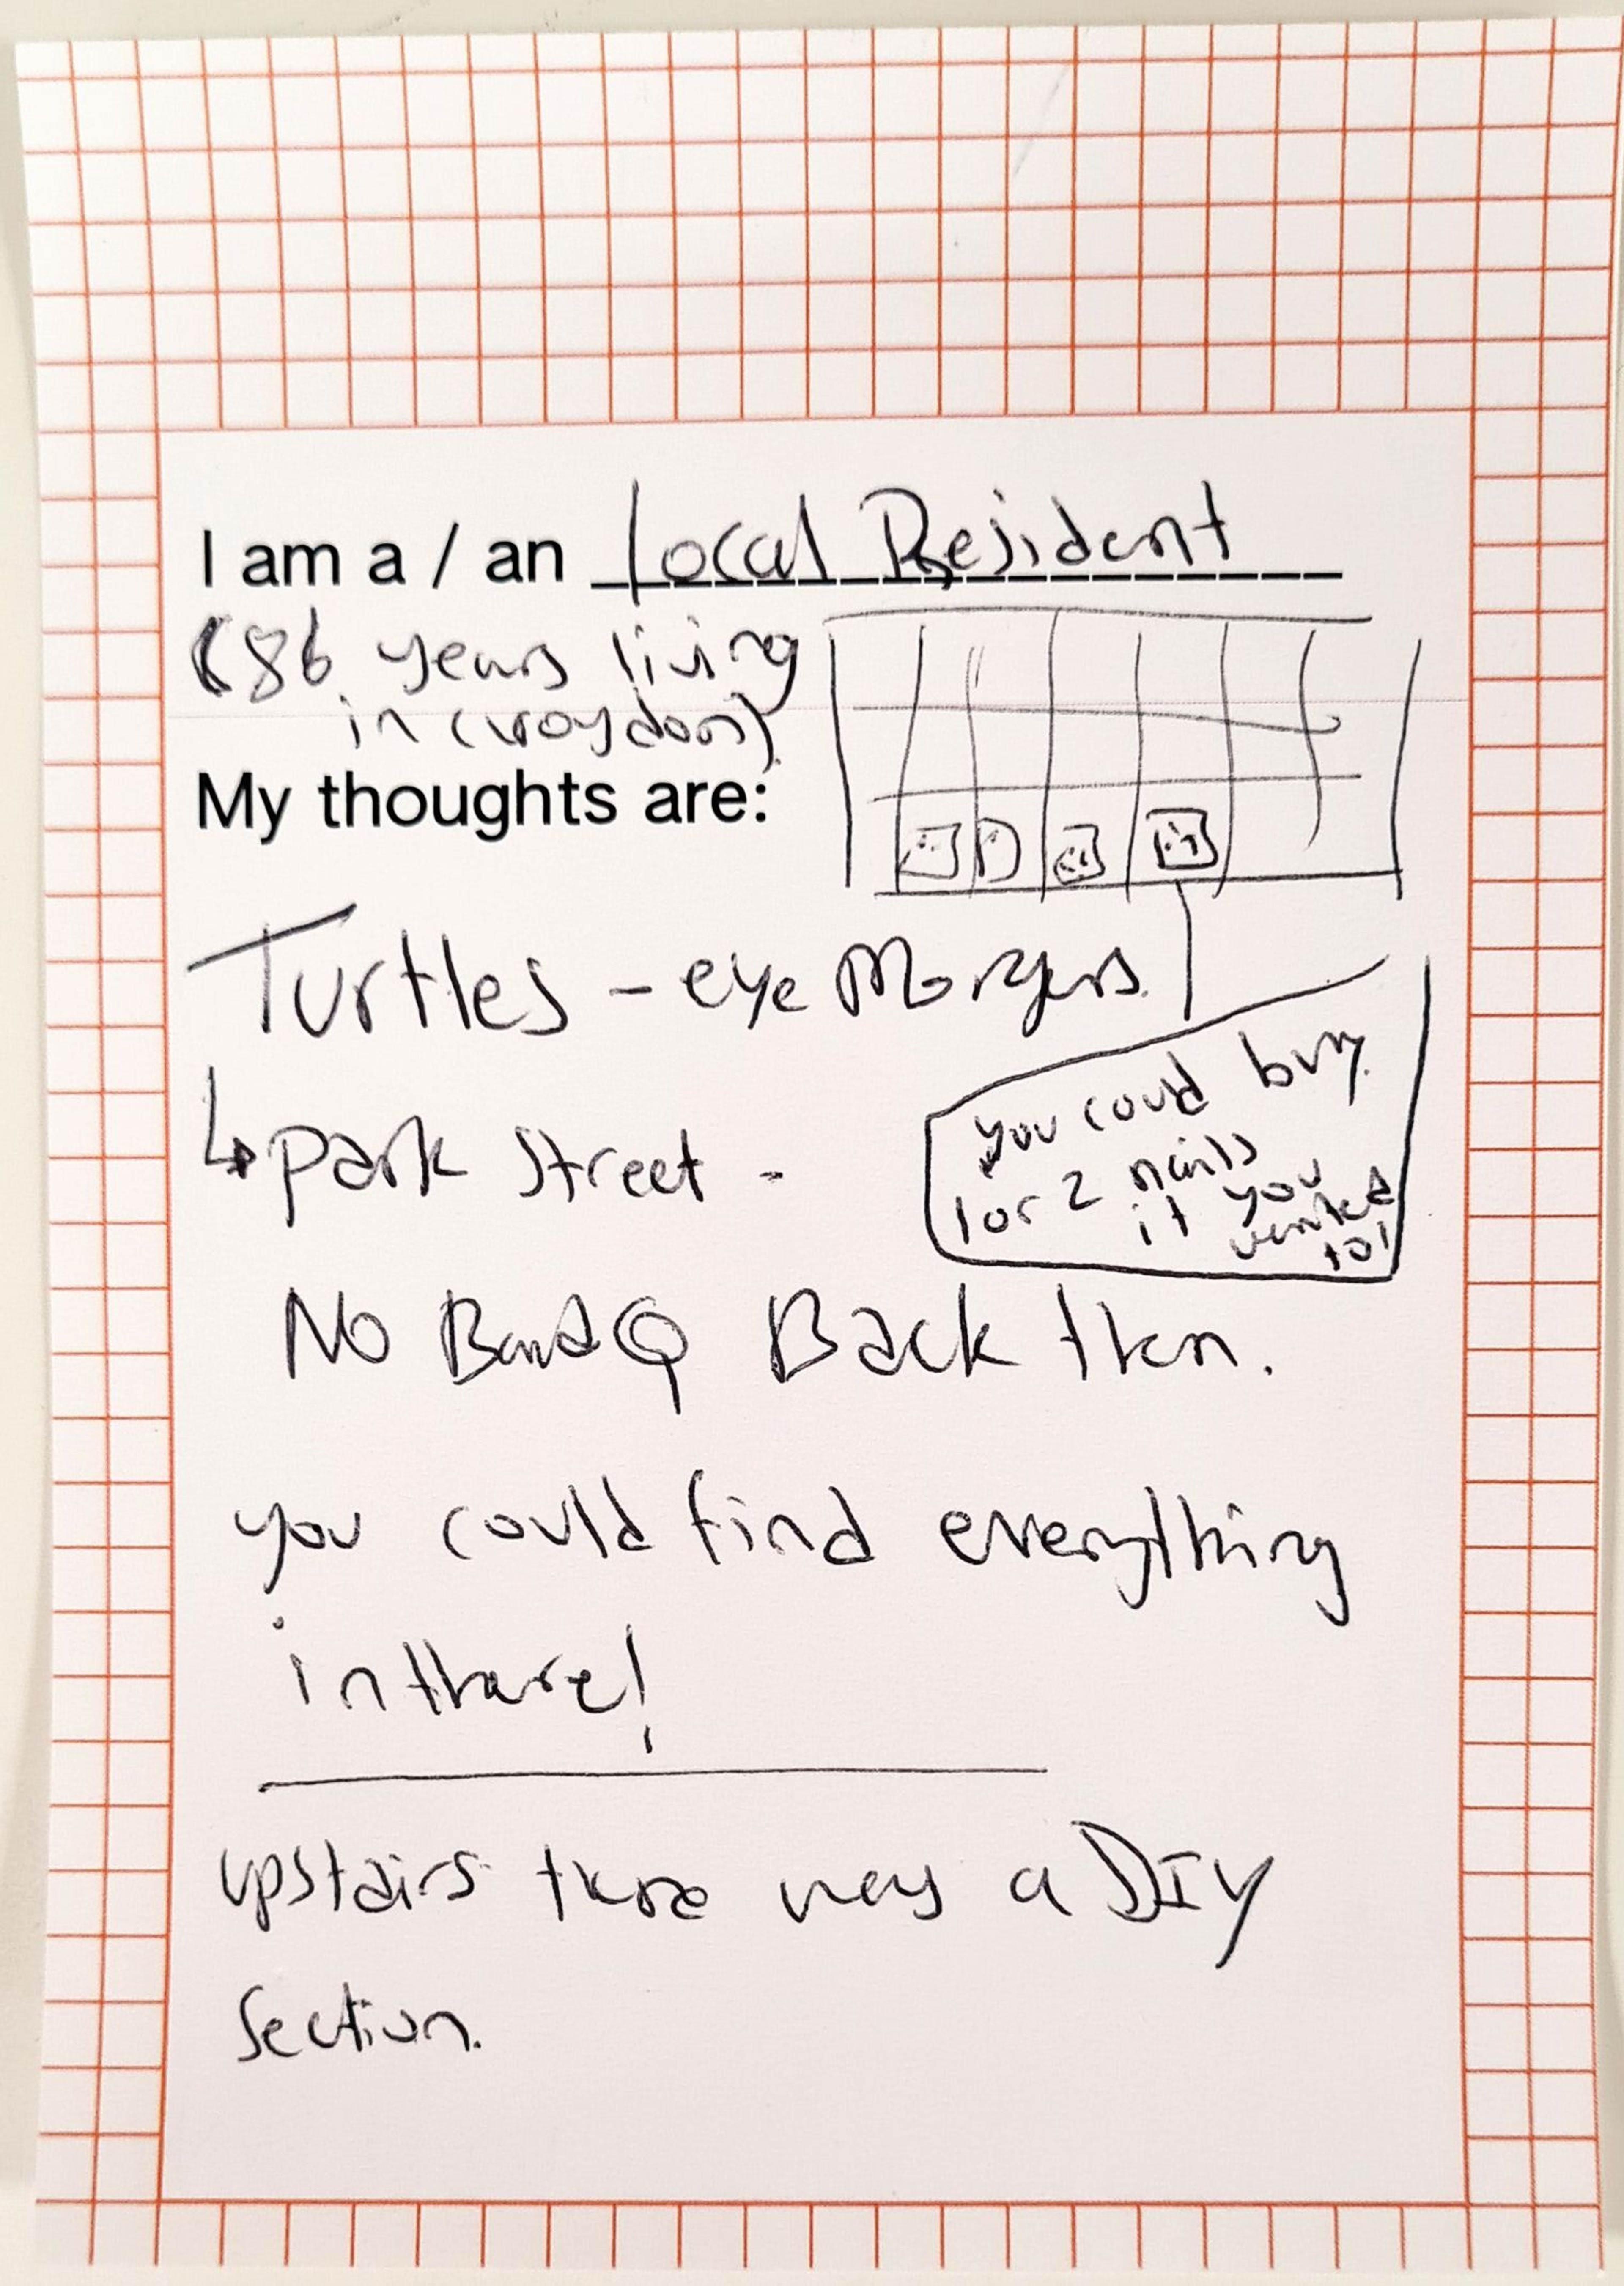 I am a / an Local Resident
(86 years living
in Croydon)
My thoughts are:
Turtles – eye Morgers
↳ Park Street -
you could buy
1 or 2 nails
if you
wanted
to!
No BandQ Back then.
you could find everything
in there!
upstairs there was a DIY
Section.